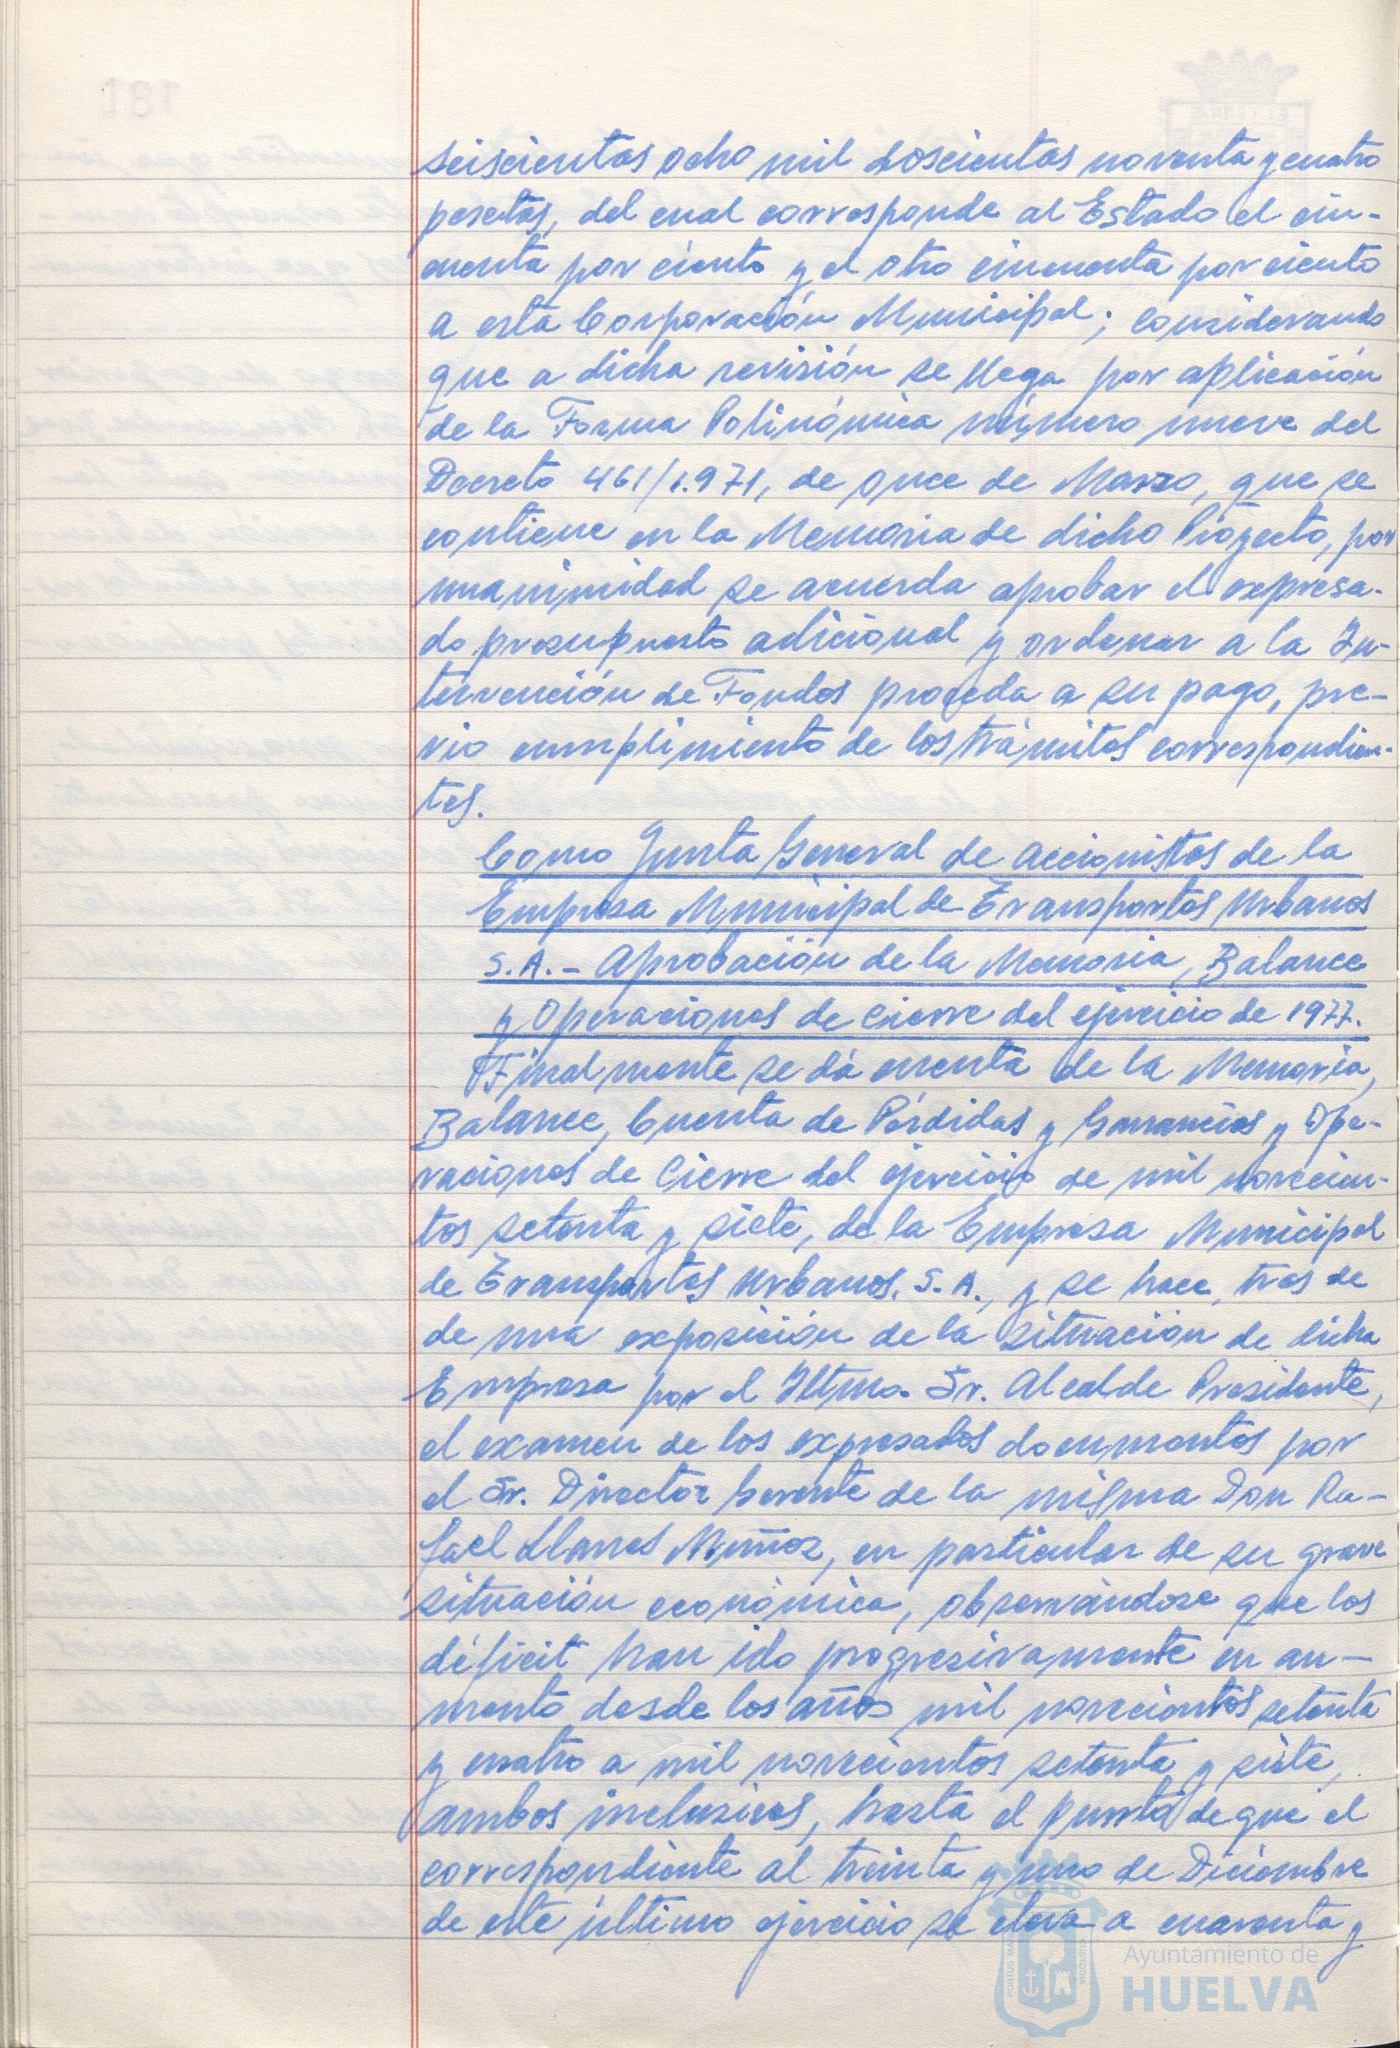 seiscientas ocho mil doscientas noventa y cuatro
pesetas, del cual corresponde al Estado el cin-
cuenta por ciento y el otro cincuenta por ciento
a esta Corporación Municipal; considerando
que a dicha revisión se llega por aplicación
de la Forma Polinómica número nueve del
Decreto 461/1.971, de once de Marzo, que se
contiene en la Memoria de dicho Proyecto, por
unanimidad se acuerda aprobar el expresa-
do presupuesto adicional y ordenar a la In-
tervención de Fondos proceda a su pago, pre-
vio cumplimiento de los trámites correspondien-
tes.
Como Junta General de Accionistas de la
Empresa Municipal de Transportes Urbanos
S.A.- Aprobación de la Memoria, Balance
y Operaciones de cierre del ejercicio de 1977.
Finalmente se dá cuenta de la Memoria,
Balance, Cuenta de Pérdidas y Ganancias y Ope-
raciones de Cierre del ejercicio de mil novecien-
tos setenta y siete, de la Empresa Municipal
de Transportes Urbanos, S.A., y se hace, tras de
de una exposición de la situación de dicha
Empresa por el Iltmo. Sr. Alcalde Presidente,
el examen de los expresados documentos por
el Sr. Director Gerente de la misma Don Ra-
fael Llanes Muñoz, en particular de su grave
situación económica, observándose que los
déficit han ido progresivamente en au-
mento desde los años mil novecientos setenta
y cuatro a mil novecientos setenta y siete,
ambos inclusives, hasta el punto de que el
correspondiente al treinta y uno de Diciembre
de este último ejercicio se eleva a cuarenta y
Ayuntamiento de
HUELVA